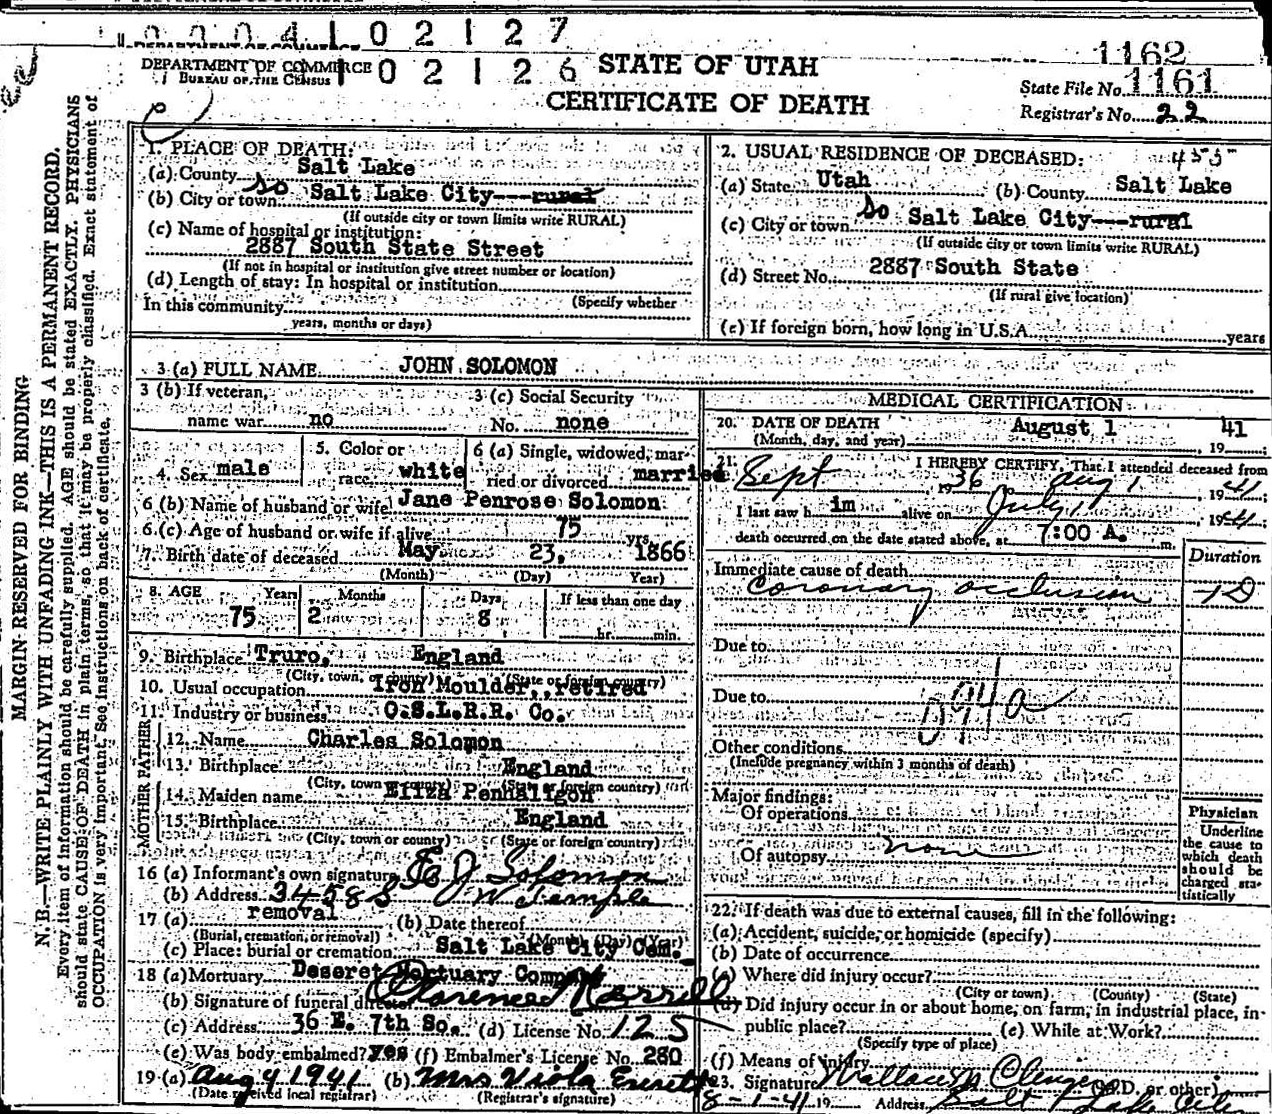 0 0 0 4 1 0 2 1 2 7
DEPARTMENT OF COMMERCE
BUREAU OF THE CENSUS
1 0 2 1 2 6
STATE OF UTAH
CERTIFICATE OF DEATH
1162
State File No. 1161
Registrar's No. 22
MARGIN RESERVED FOR BINDING
N. B.—WRITE PLAINLY WITH UNFADING INK—THIS IS A PERMANENT RECORD.
Every item of information should be carefully supplied. AGE should be stated EXACTLY. PHYSICIANS
should state CAUSE OF DEATH in plain terms, so that it may be properly classified. Exact statement of
OCCUPATION is very important. See instructions on back of certificate.
1. PLACE OF DEATH:
(a) County Salt Lake
(b) City or town So Salt Lake City---rural
(If outside city or town limits write RURAL)
(c) Name of hospital or institution:
2887 South State Street
(If not in hospital or institution give street number or location)
(d) Length of stay: In hospital or institution
(Specify whether
In this community
years, months or days)
2. USUAL RESIDENCE OF DECEASED: 455
(a) State Utah (b) County Salt Lake
(c) City or town So Salt Lake City---rural
(If outside city or town limits write RURAL)
(d) Street No. 2887 South State
(If rural give location)
(e) If foreign born, how long in U.S.A. years
3 (a) FULL NAME JOHN SOLOMON
3 (b) If veteran, name war no
3 (c) Social Security No. none
4. Sex male
5. Color or race white
6 (a) Single, widowed, married or divorced married
6 (b) Name of husband or wife Jane Penrose Solomon
6 (c) Age of husband or wife if alive 75 yrs.
7. Birth date of deceased May 23, 1866
(Month) (Day) Year)
8. AGE Years Months Days If less than one day
75 2 8 hr. min.
9. Birthplace Truro, England
(City, town, or county) (State or foreign country)
10. Usual occupation Iron Moulder, retired
11. Industry or business O.S.L.R.R. Co.
FATHER
12. Name Charles Solomon
13. Birthplace England
(City, town or county) (State or foreign country)
MOTHER
14. Maiden name Eliza Penhaligon
15. Birthplace England
(City, town or county) (State or foreign country)
16 (a) Informant's own signature J Solomon
(b) Address 3458 S W Temple
17 (a) removal (b) Date thereof
(Burial, cremation, or removal) (Month) (Day) (Year)
(c) Place: burial or cremation Salt Lake City Cem.
18 (a) Mortuary Deseret Mortuary Company
(b) Signature of funeral director Clarence
(c) Address 36 E. 7th So. (d) License No. 125
(e) Was body embalmed? yes (f) Embalmer's License No. 280
19 (a) Aug 4 1941 (b) Mrs Viola Everett
(Date received local registrar) (Registrar's signature)
MEDICAL CERTIFICATION
20. DATE OF DEATH August 1 41
(Month, day, and year) , 19
21. I HEREBY CERTIFY, That I attended deceased from
Sept 1936 Aug 1, 1941;
I last saw him alive on July 1, 1941;
death occurred on the date stated above, at 7:00 A. m.
Duration
Immediate cause of death
Coronary occlusion 1 D
Due to
Due to 094a
Other conditions
(Include pregnancy within 3 months of death)
Major findings:
Of operations
Of autopsy none
Physician
Underline
the cause to
which death
should be
charged sta-
tistically
22. If death was due to external causes, fill in the following:
(a) Accident, suicide, or homicide (specify)
(b) Date of occurrence
(c) Where did injury occur?
(City or town) (County) (State)
(d) Did injury occur in or about home, on farm, in industrial place, in
public place? (e) While at Work?
(Specify type of place)
(f) Means of injury
23. Signature Wallace (M.D. or other)
8-1-41 19 Address Salt Lake